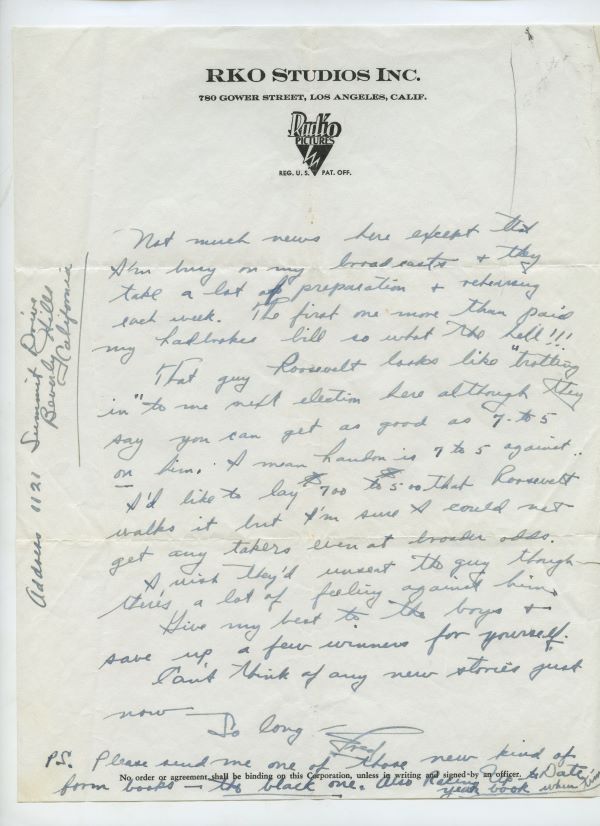 RKO STUDIOS INC.
780 GOWER STREET, LOS ANGELES, CALIF.
Radio
PICTURES
REG. U. S. PAT. OFF.
Not much news here except that
I'm busy on my broadcasts & they
take a lot of preparation & rehearsing
each week. The first one more than paid
my hadbrokes bill so what the hell!!!
That guy Roosevelt looks like "trotting
in" to me next election here although they
say you can get as good as 7 to 5
on him. I mean Landon is 7 to 5 against..
I'd like to lay $700 to $500 that Roosevelt
walks it but I'm sure I could not
get any takers even at broader odds.
I wish they'd unseat the guy though —
there's a lot of feeling against him.
Give my best to the boys &
save up a few winners for yourself.
Can't think of any new stories just
now —
So long —
Fred
P.S. Please send me one of those new kind of
form books — the black one. Also Racing Up to Date
year book when
No order or agreement shall be binding on this Corporation, unless in writing and signed by an officer.
Address 1121 Summit Drive
Beverly Hills
California